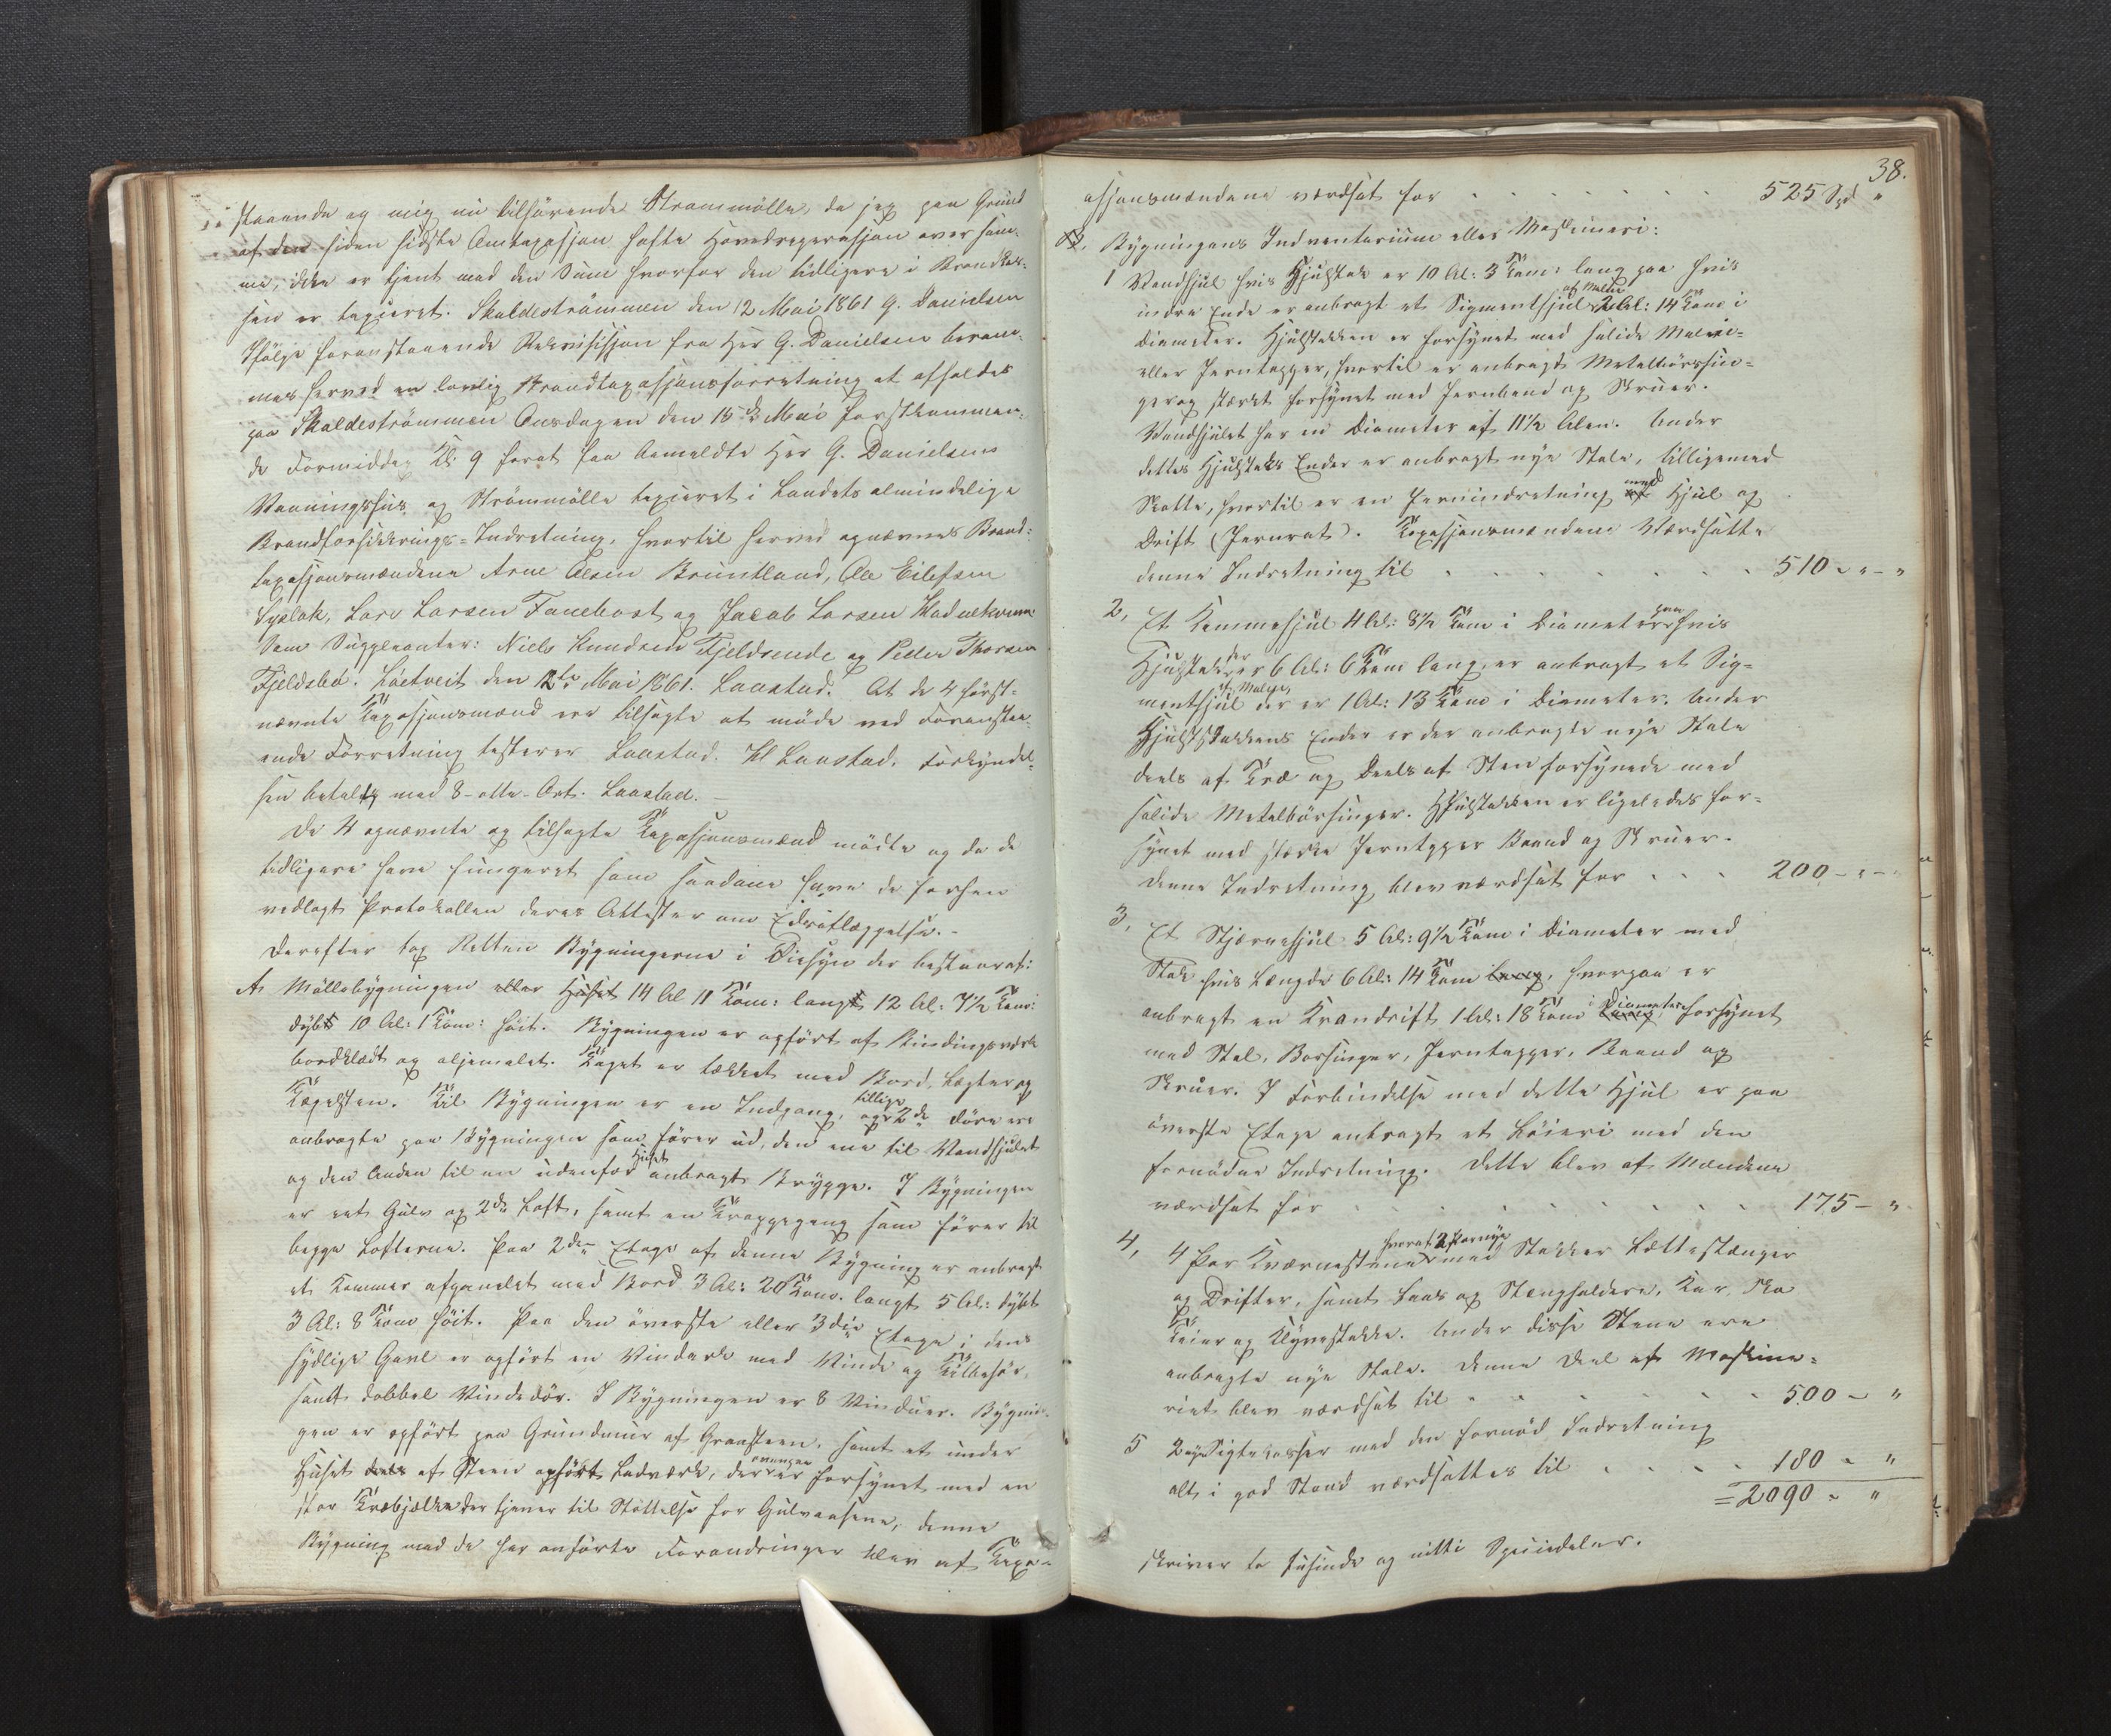 staaende og mig nu tilhörende Strömmölle, da jeg paa Grund
af den siden sidste Omtaxasjon hafte Hovedreperasjon over sam-
me, ikke er tjent med den Sum hvorfor den tidligere i Brandkas-
sen er taxeret. Skaldeströmmen den 12 Mai 1861 G. Danielsen
Ifölge foranstaaende Rekvisisjon fra Her G. Danielsen beram-
mes herved en lovlig Brandtaxasjonsforretning at afholdes
paa Skaldeströmmen Onsdagen den 15de Mai förstkommen-
de Formiddag Kl: 9 forat faa Anmeldte Her G. Danielsens
Vaaningshus og Strömmölle taxeret i Landets almindelige
Brandforsikkrings-Indretning, hvortil herved opnævnes Brand-
taxasjonsmændene Arne Olsen Bruntland, Ole Eilefsen
Syslak, Lars Larsen Fanebost og Jacob Larsen Hadnekvam
Som Suppleanter: Niels Knudsen Fjeldsende og Peder Thorsen
Fjeldsbö. Löetveit den 12te Mai 1861. Laastad. At de 4 först-
nævnte Taxasjonsmænd ere tilsagte at möde ved Foranstaa-
ende Forretning testerer Laastad. Hl Laastad. Forkyndel-
sen betalt med 8 - otte - Ort. Laastad. -
De 4 opnævnte og tilsagte Taxasjonsmænd mödte og da de
tidligere have fungeret som saadane have de forhen
vedlagt Protokollen deres Attester om Edsaflæggelse. -
Derefter tog Retten Bygningerne i Öiesyn der bestaaraf:
A. Möllebygningen eller Huset 14 Al 11 Tom: langt 12 Al: 7½ Tom:
dybt 10 Al: 1 Tom: höit. Bygningen er opfört af Bindingsværk
bordklædt og oljemalet. Taget er tækket med Bord, Lægter og
Tægelsten. Til Bygningen er en Indgang, tillige 2de Döre ere
anbragte paa Bygningen som förer ud, den ene til Vandhjulet
og den Anden til en udenfor Huset anbragt Brygge. I Bygningen
er et Gulv og 2de Loft, samt en Trappegang som förer til
begge Lofterne. Paa 2den Etage af denne Bygning er anbragt
et Kammer afpanelet med Bord 3 Al: 20 Tom: langt 5 Al: dybt
3 Al: 8 Tom höit. Paa den överste eller 3die Etage i dens
sydlige Gavl er opfört en Vindark med Vinde og Tilbehör,
samt dobbel Vindedör. I Bygningen er 8 Vinduer. Bygnin-
gen er opfört paa Grundmur af Graasteen, samt et under
Huset af Steen opfört Ladværk, der er forsynet med en
stor Træbjælke der tjener til Stöttelse for Gulvaasene, denne
Bygning med de her anförte Forandringer blev af Taxa-
38.
asjonsmændene værdsat for . . . . . . . 525 Spd "
B, Bygningens Indventarium eller Maskineri:
1 Vandhjul hvis Hjulstok er 10 Al: 3 Tom: lang paa hvis
indre Ende er anbragt et Sigmentshjul 2 Al: 14 Tom i
Diameter. Hjulstokken er forsynet med solide
eller Jerntapper, hvortil er anbragt Metalbörssin-
ger og stærkt forsynet med Jernbaand og Skruer.
Vandhjulet har en Diameter af 11½ Alen. Under
dettes Hjulstoks Ender er anbragt nye Stole, tilligemed
Skotte, hvortil er en Jernindretning med Hjul og
Drift (Jernrat). Taxasjonsmændene Værdsatte
denne Indretning til . . . . . . . 510 - " - "
2, Et Kammehjul 4 Al: 8½ Tom i Diameter paa hvis
Hjulstok der er 6 Al: 6 Tom lang, er anbragt et Sig-
mentshjul der er 1 Al: 13 Tom i Diameter. Under
Hjulstokkens Ender er der anbragte nye Stole
deels af Træ og Deels af Sten forsynede med
solide Metalbörsinger. Hjulstokken er ligeledes for-
synet med stærke Jerntapper Baand og Skruer.
Denne Indretning blev værdsat for . . . 200 - " - "
3, Et Stjærnehjul 5 Al: 9½ Tom i Diameter med
Stok hvis Længde 6 Al: 14 Tom lang, hvorpaa er
anbragt en Krandrift 1 Al: 18 Tom i Diameter forsynet
med Stol, Borsinger, Jerntapper, Baand og
Skruer. I Forbindelse med dette Hjul er paa
överste Etage anbragt et Höieri med den
fornödne Indretning. Dette blev af Mændene
værdsat for . . . . . . . . 175 - "
4, 4 Par Kværnestene hvoraf 2 Par nye med Stokker Lættestænger
og Drifter, samt Laas og Stangholdere, Kar, Sko
Teiner og Klyvestokke. Under disse Stene ere
anbragte nye Stole. Denne Deel af Maskine-
riet blev værdsat til . . . . . . 500 - "
5 2 nye Sigtekasser med den fornöd. Indretning
alt i god Stand værdsattes til . . . . . 180 - "
= 2090 - "
skriver to tusinde og nitti Speciedaler.